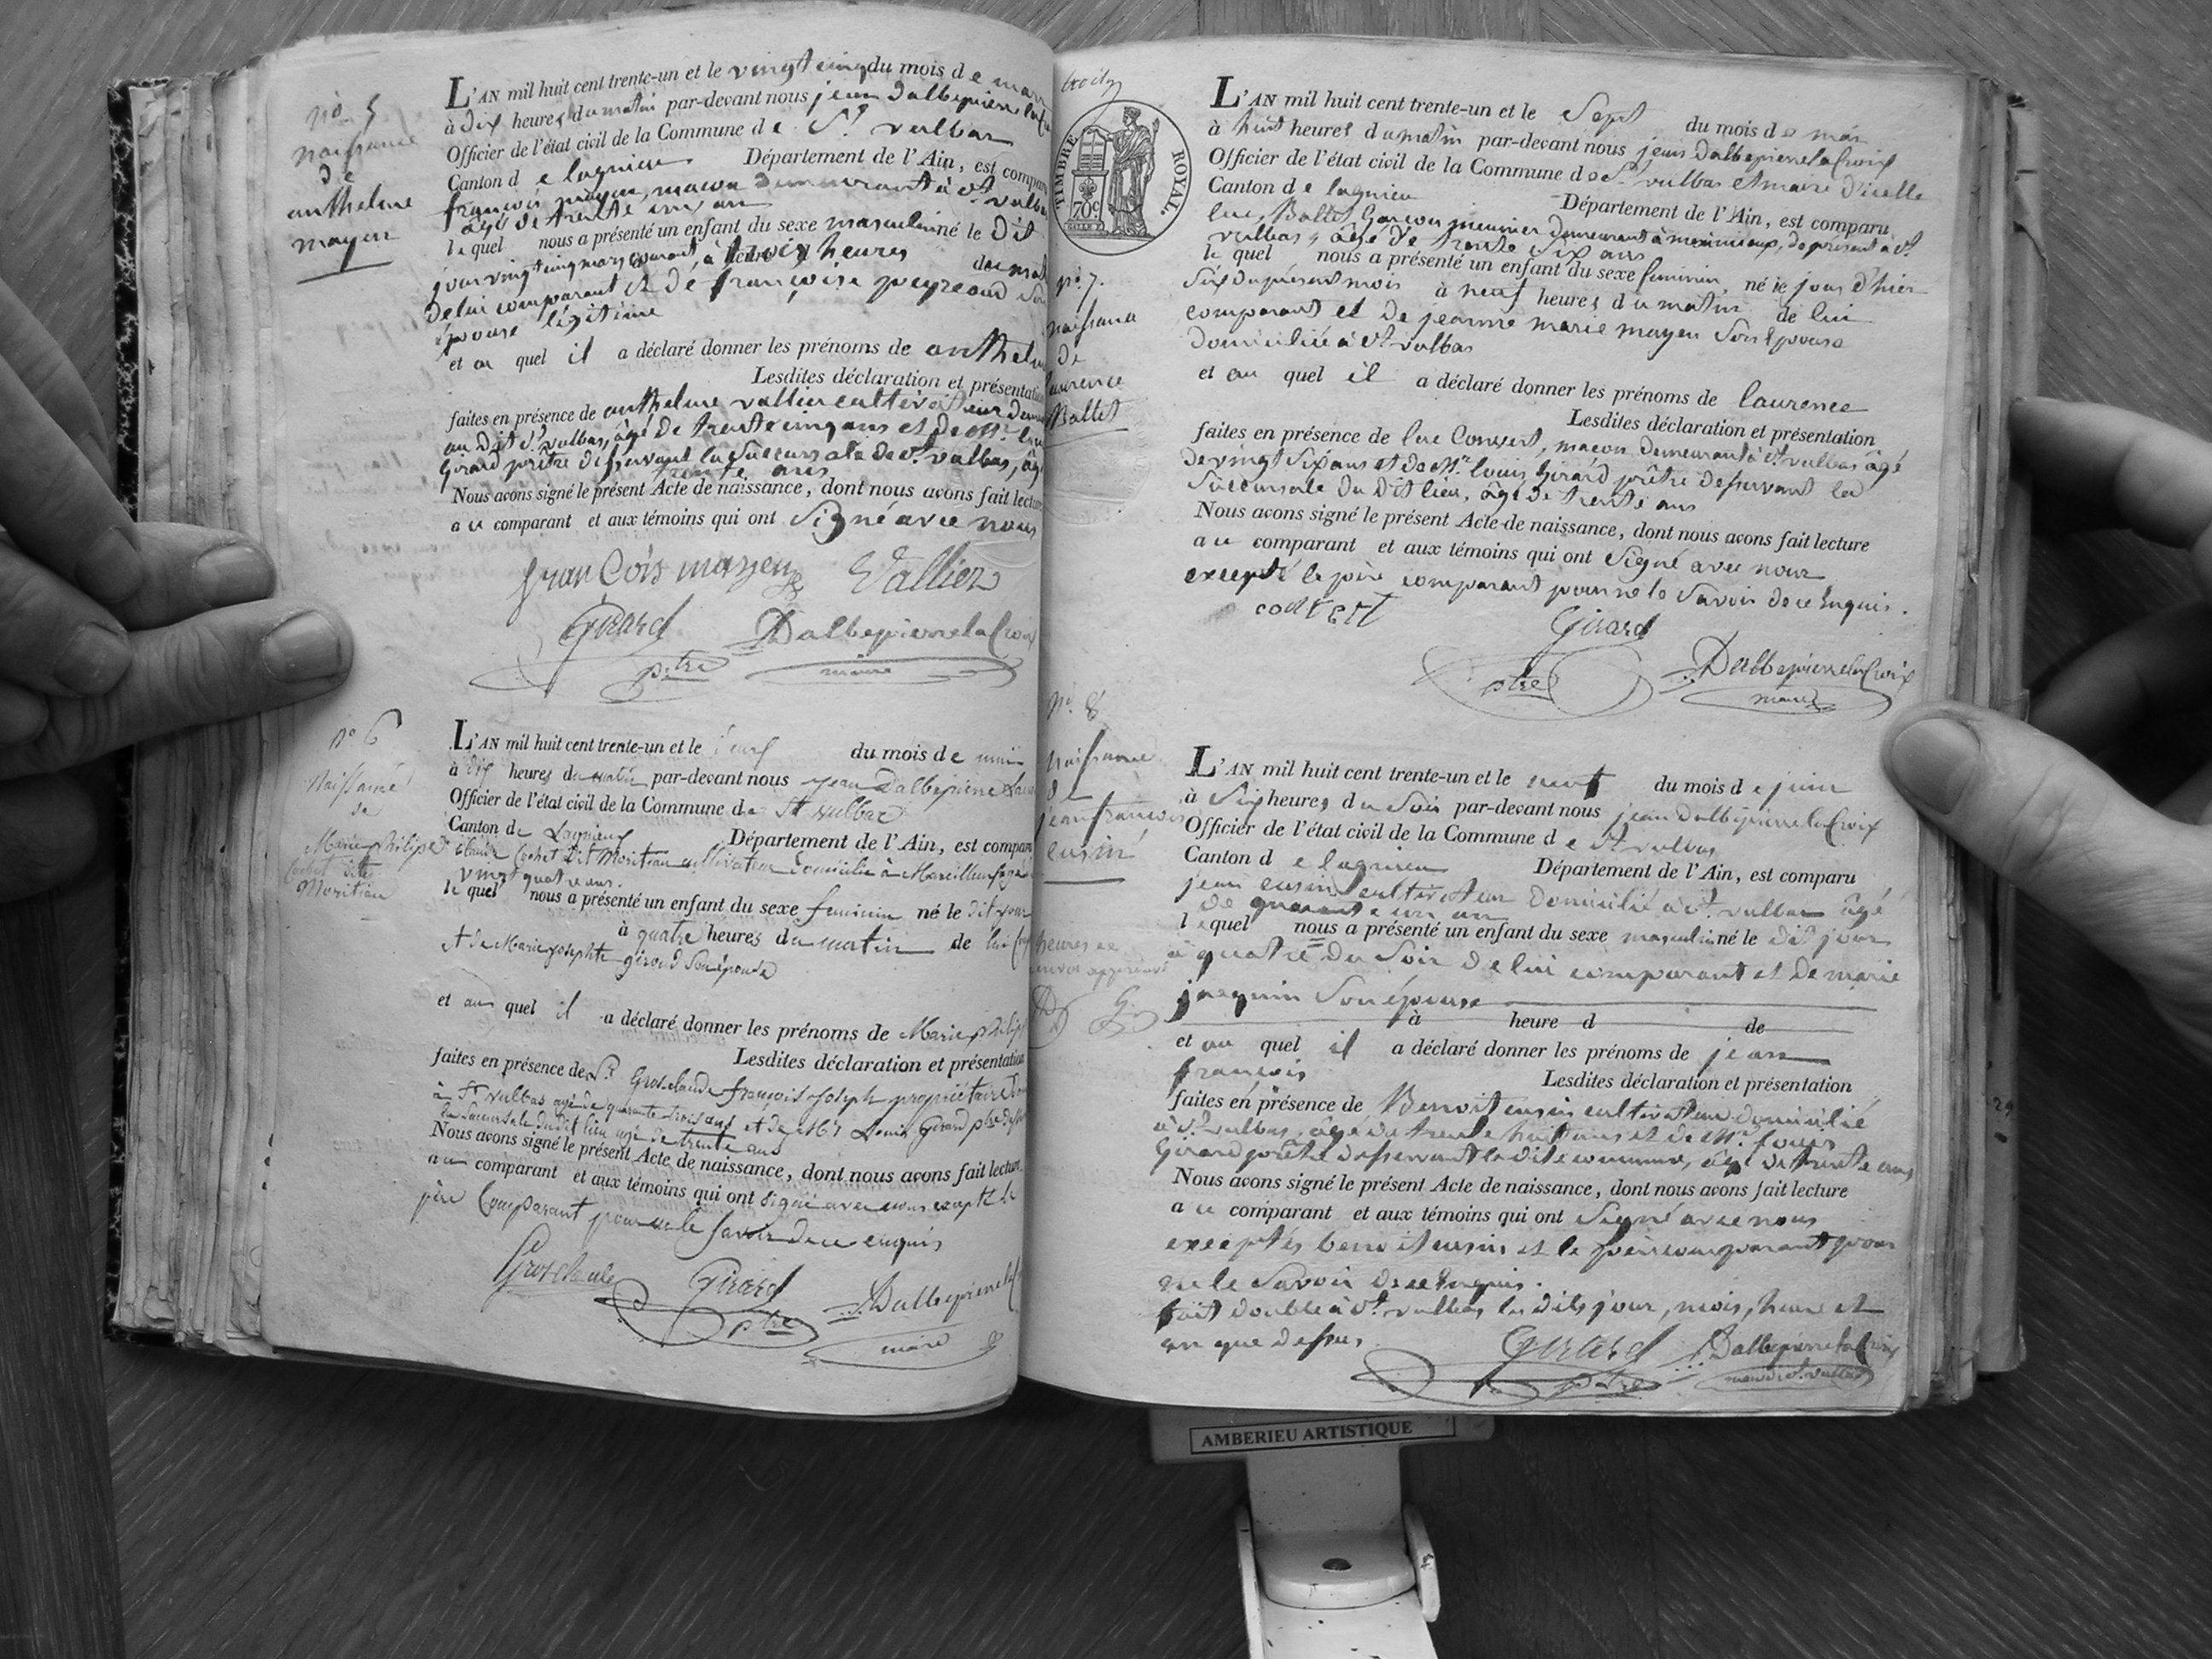 no 5
naissance
de
anthelme
mayen
L'AN mil huit cent trente-un et le vingt cinq du mois de mars
à dix heures du matin par-devant nous jean Dalbepierre la
Officier de l'état civil de la Commune de St vulbas
Canton de lagnieu Département de l'Ain, est compar
françois mayen, maçon demeurant à St vulbas
âgé de trente cinq ans
lequel nous a présenté un enfant du sexe masculin né le dit
jour vingt cinq mars courant, à trois heures du mat
de lui comparant et de françoise peyreaud son
épouse légitime
et au quel il a déclaré donner les prénoms de anthelm
Lesdites déclaration et présentation
faites en présence de anthelme vallier cultivateur dem
au dit St vulbas, âgé de trente cinq ans et de Mr
Girard prêtre desservant la succursale de St vulbas, âgé
trente ans
Nous avons signé le présent Acte de naissance, dont nous avons fait lecture
au comparant et aux témoins qui ont signé avec nous
françois mayen Vallier
Girard Dalbepierre la Croix
ptre maire
no 6
Naissance
de
Marie Philip
Cochet dite
Moritian
L'AN mil huit cent trente-un et le du mois de mai
à dix heures du matin par-devant nous jean Dalbepierre Lacr
Officier de l'état civil de la Commune de St vulbas
Canton de Lagnieu Département de l'Ain, est comparu
Claude Cochet dit Moritian cultivateur domicilié à Marcilleux âgé
vingt quatre ans.
lequel nous a présenté un enfant du sexe feminin né le dit jour
à quatre heures du matin de lui
et de Marie josephte giroud son épouse
et au quel il a déclaré donner les prénoms de Marie philip
Lesdites déclaration et présentation
faites en présence de Sr Grosclaude françois joseph propriétaire
à St vulbas agé de quarante trois ans et de Mr Louis Girard ptre
la succursale du dit lieu agé de trente ans
Nous avons signé le présent Acte de naissance, dont nous avons fait lecture
au comparant et aux témoins qui ont signé avec nous excepté le
père Comparant pour ne le savoir de ce enquis
Grosclaude Girard Dalbepierre la
ptre maire
TIMBRE ROYAL.
70c
no 7.
naissance
de
laurence
Ballet
L'AN mil huit cent trente-un et le Sept du mois de mai
à huit heures du matin par-devant nous jean Dalbepierre la Croix
Officier de l'état civil de la Commune de St vulbas et maire d'icelle
Canton de lagnieu Département de l'Ain, est comparu
luc Ballet, Garçon meunier demeurant à meximieux, de présent à St
vulbas, âgé de trente six ans
lequel nous a présenté un enfant du sexe feminin, né le jour d'hier
six du présent mois à neuf heures du matin de lui
comparant et de jeanne marie mayen son épouse
domiciliée à St vulbas
et au quel il a déclaré donner les prénoms de laurence
Lesdites déclaration et présentation
faites en présence de luc Convert, maçon demeurant à St vulbas âgé
de vingt six ans et de Mr louis Girard prêtre desservant la
succursale du dit lieu, âgé de trente ans
Nous avons signé le présent Acte de naissance, dont nous avons fait lecture
au comparant et aux témoins qui ont signé avec nous
excepté le père comparant pour ne le savoir de ce enquis.
convert Girard
ptre Dalbepierre la Croix
maire
no 8
naissance
de
jean françois
cusin
heures
L'AN mil huit cent trente-un et le neuf du mois de juin
à Six heures du Soir par-devant nous jean dalbepierre la Croix
Officier de l'état civil de la Commune de St vulbas
Canton de lagnieu Département de l'Ain, est comparu
jean cusin cultivateur Domicilié à St vulbas âgé
de quarante un an
lequel nous a présenté un enfant du sexe masculin né le dit jour
à quatre du Soir de lui comparant et de marie
jacquin son épouse
à heure d de
et au quel il a déclaré donner les prénoms de jean
françois Lesdites déclaration et présentation
faites en présence de Benoit cusin cultivateur domicilié
à St vulbas, âgé de trente huit ans et de Mr louis
Girard prêtre desservant la dite commune, âgé de trente ans
Nous avons signé le présent Acte de naissance, dont nous avons fait lecture
au comparant et aux témoins qui ont Signé avec nous
exceptés benoit cusin et le père comparant pour
ne le savoir de ce enquis.
fait double à St vulbas les dits jour, mois, heure et
an que dessus. Girard Dalbepierre la Croix
ptre maire de St vulbas
29
AMBERIEU ARTISTIQUE